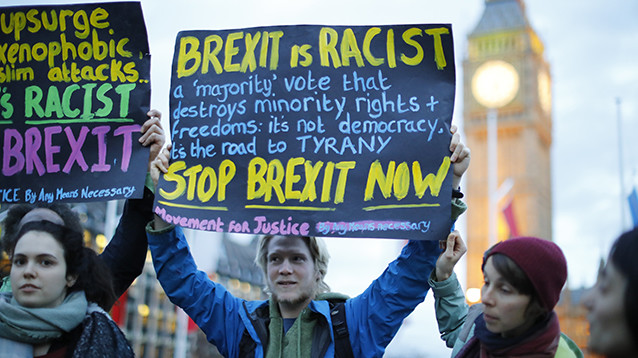 upsurge
xenophobic
slim attacks..
's RACIST
BREXIT
ICE By Any Means Necessary
BREXIT is RACIST
a 'majority' vote that
destroys minority rights +
freedoms: it's not democracy.
it's the road to TYRANNY
STOP BREXIT NOW
movement for Justice By Any Means Necessary